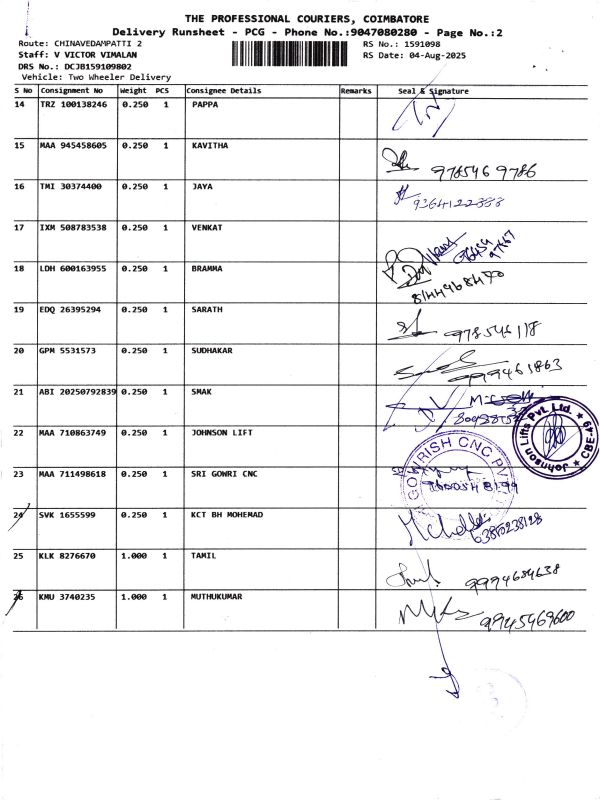 THE PROFESSIONAL COURIERS, COIMBATORE
Delivery Runsheet - PCG - Phone No.:9047080280 - Page No.:2
Route: CHINAVEDAMPATTI 2
RS No.: 1591098
Staff: V VICTOR VIMALAN
RS Date: 04-Aug-2025
DRS No.: DCJB159109802
Vehicle: Two Wheeler Delivery
S No Consignment No Weight PCS Consignee Details Remarks Seal & Signature
14 TRZ 100138246 0.250 1 PAPPA
15 MAA 945458605 0.250 1 KAVITHA
978546 9786
16 TMI 30374400 0.250 1 JAYA
9364122333
17 IXM 508783538 0.250 1 VENKAT
18 LDH 600163955 0.250 1 BRAMMA
8144968470
19 EDQ 26395294 0.250 1 SARATH
978546118
20 GPM 5531573 0.250 1 SUDHAKAR
999461863
21 ABI 20250792839 0.250 1 SMAK
22 MAA 710863749 0.250 1 JOHNSON LIFT
Johnson Lifts Pvt. Ltd. * CBE-49 *
23 MAA 711498618 0.250 1 SRI GOWRI CNC
24 SVK 1655599 0.250 1 KCT BH MOHEMAD
6385238128
25 KLK 8276670 1.000 1 TAMIL
9994684638
26 KMU 3740235 1.000 1 MUTHUKUMAR
9945469600